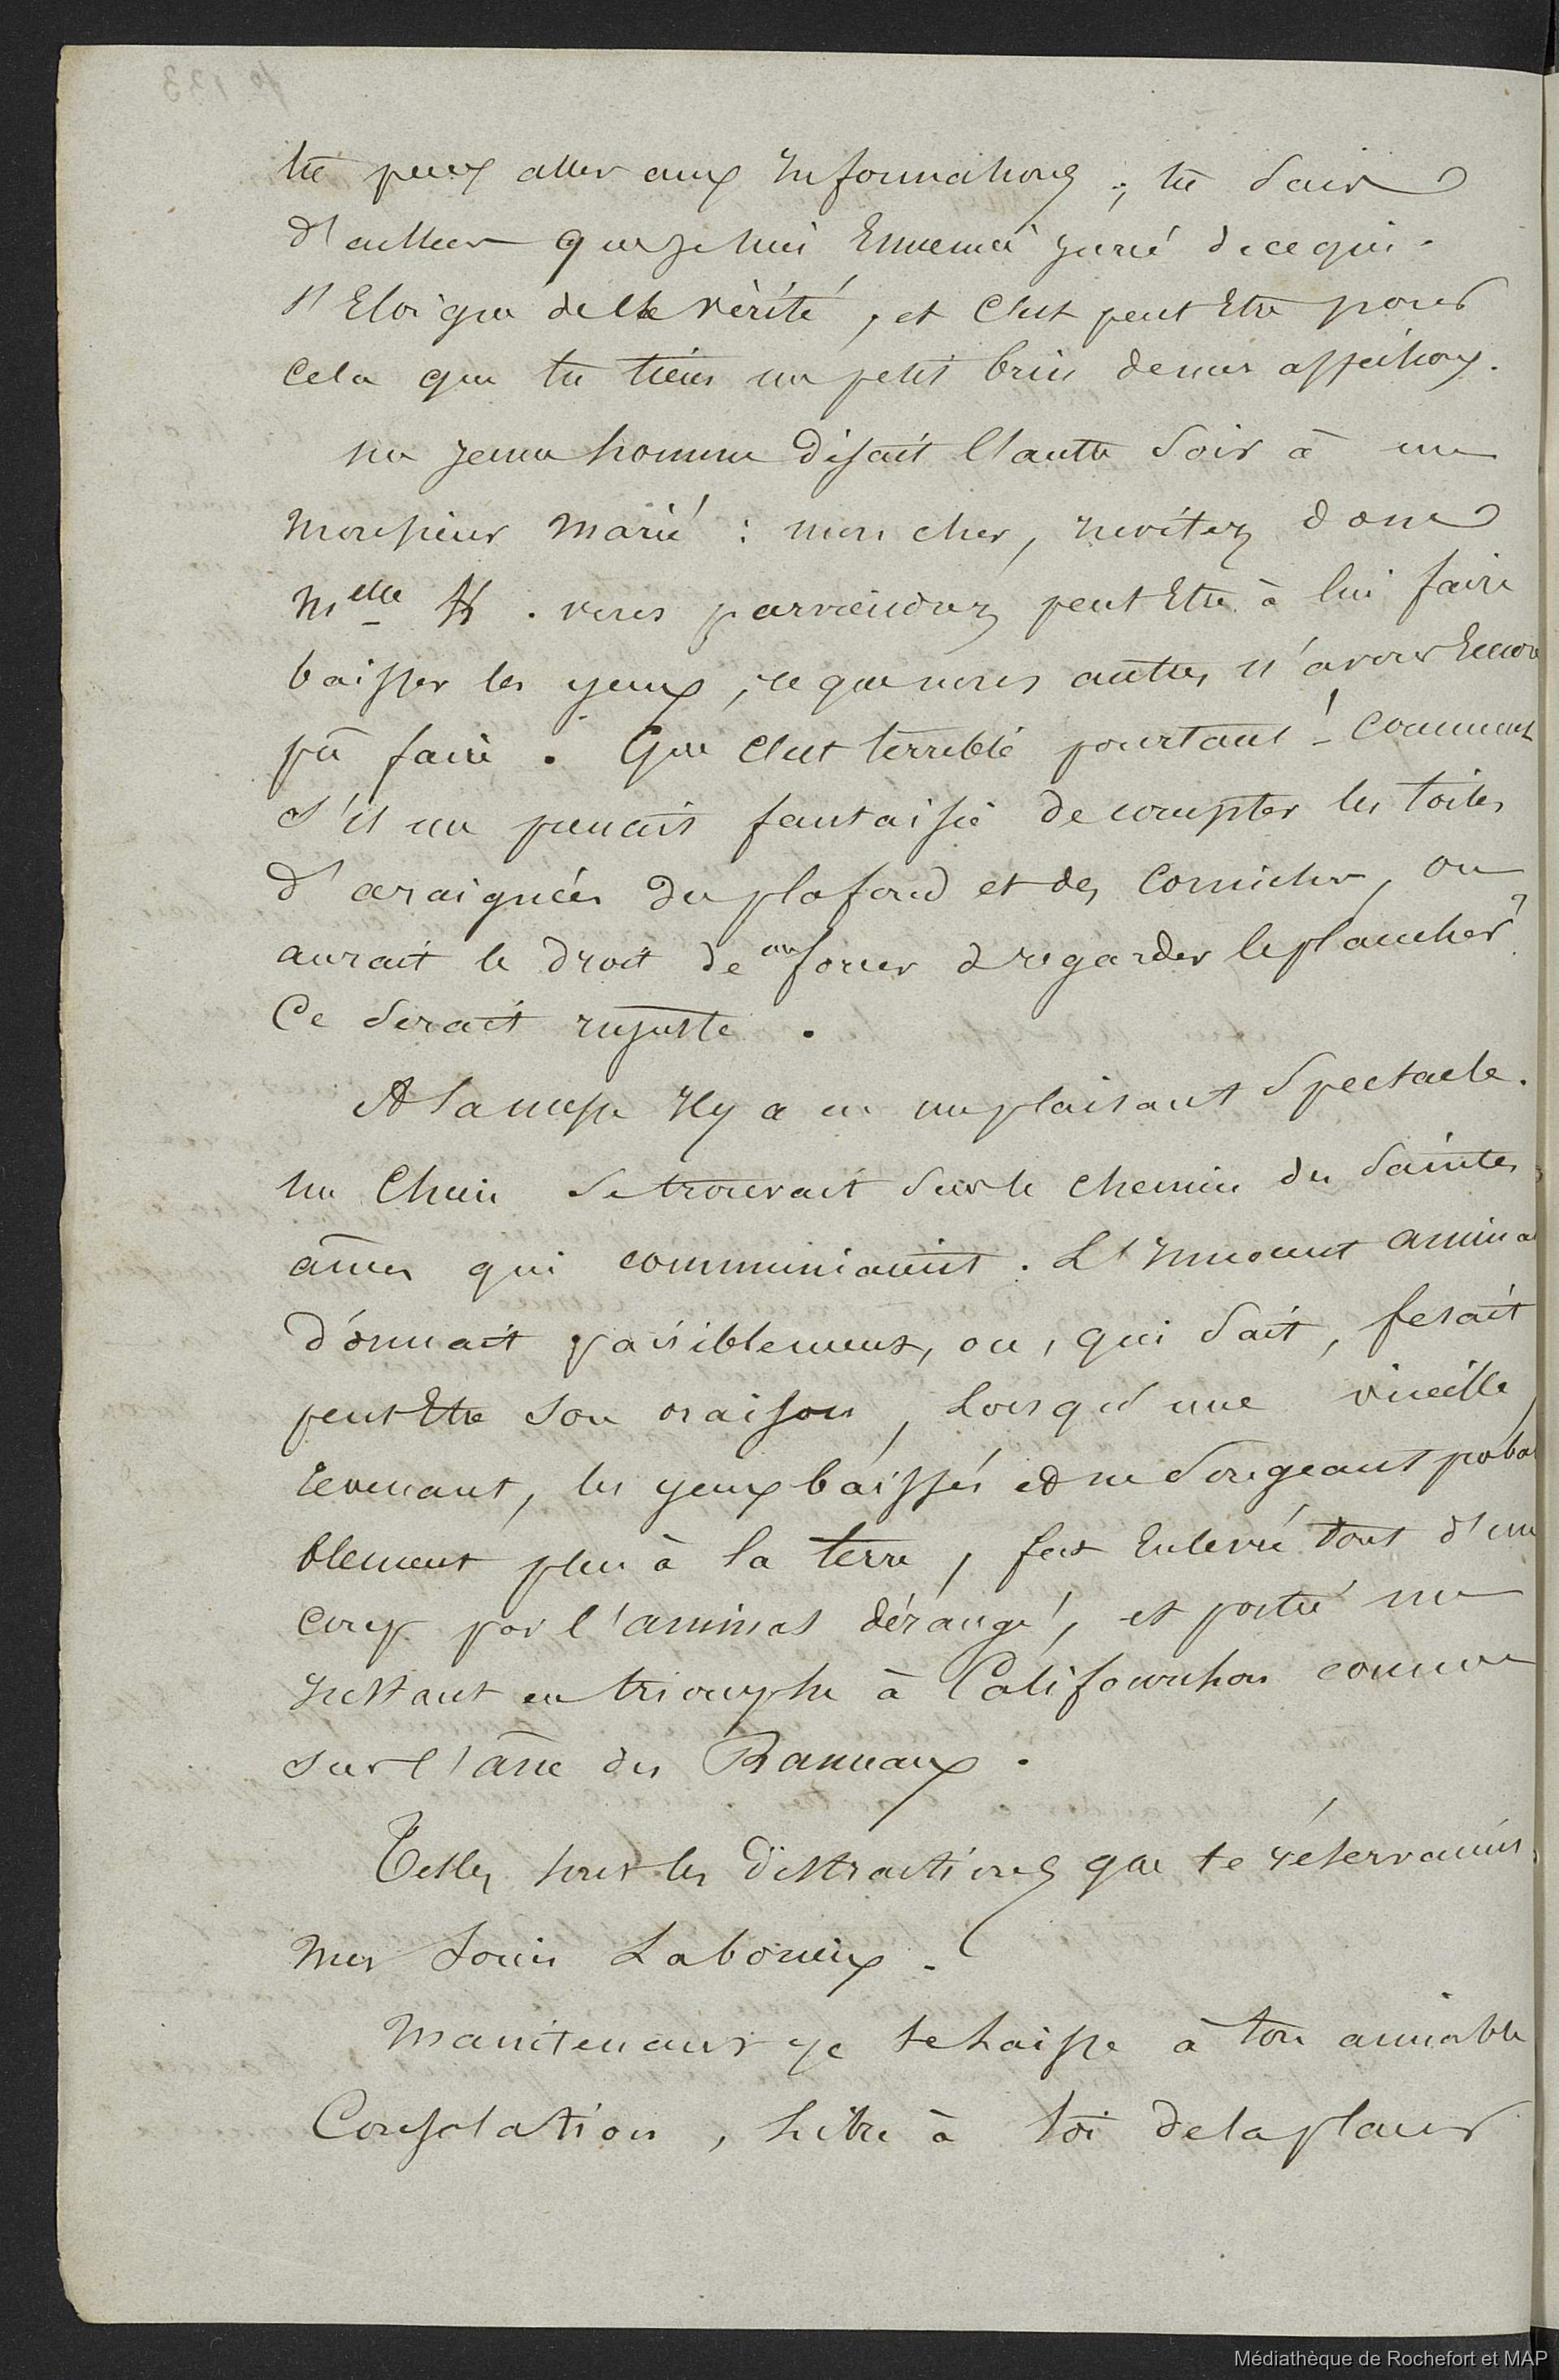 tu peux aller aux informations ; tu sais
d'ailleurs que je suis Ennemi juré de ce qui
s'Eloigne de la vérité, et C'est peut Etre pour
cela que tu tiens un petit brin de mes affections.
un jeune homme disait l'autre soir à un
Monsieur Marié : mon cher, invitez donc
Melle H. vous parviendrez peut Etre à lui faire
baisser les yeux, ce que nous autres n'avons Encore
pû faire. Que C'est terrible pourtant ! - Comment
s'il me prenait fantaisie de compter les toiles
d'araignées du plafond et des Corniches, on
aurait le droit de me forcer à regarder le plancher ?
Ce serait injuste.
A la messe il y a eu un plaisant spectacle.
un Chien se trouvait sur le chemin des saintes
âmes qui communiaient. L'innocent anima
dormait paisiblement, ou, qui sait, fesait
peut Etre son oraison, Lorsqu'une vieille,
revenant, les yeux baissés et ne songeant proba
blement plus à la terre, fut Enlevée tout d'un
coup par l'animal dérangé, et portée un
instant en triomphe à Califourchon comme
sur l'âne des Rameaux.
Telles sont les distractions que te réservaient
mes soins Laborieux.
Maintenant je te Laisse à ton aimable
Consolation, Libre à toi de la placer
Médiathèque de Rochefort et MAP